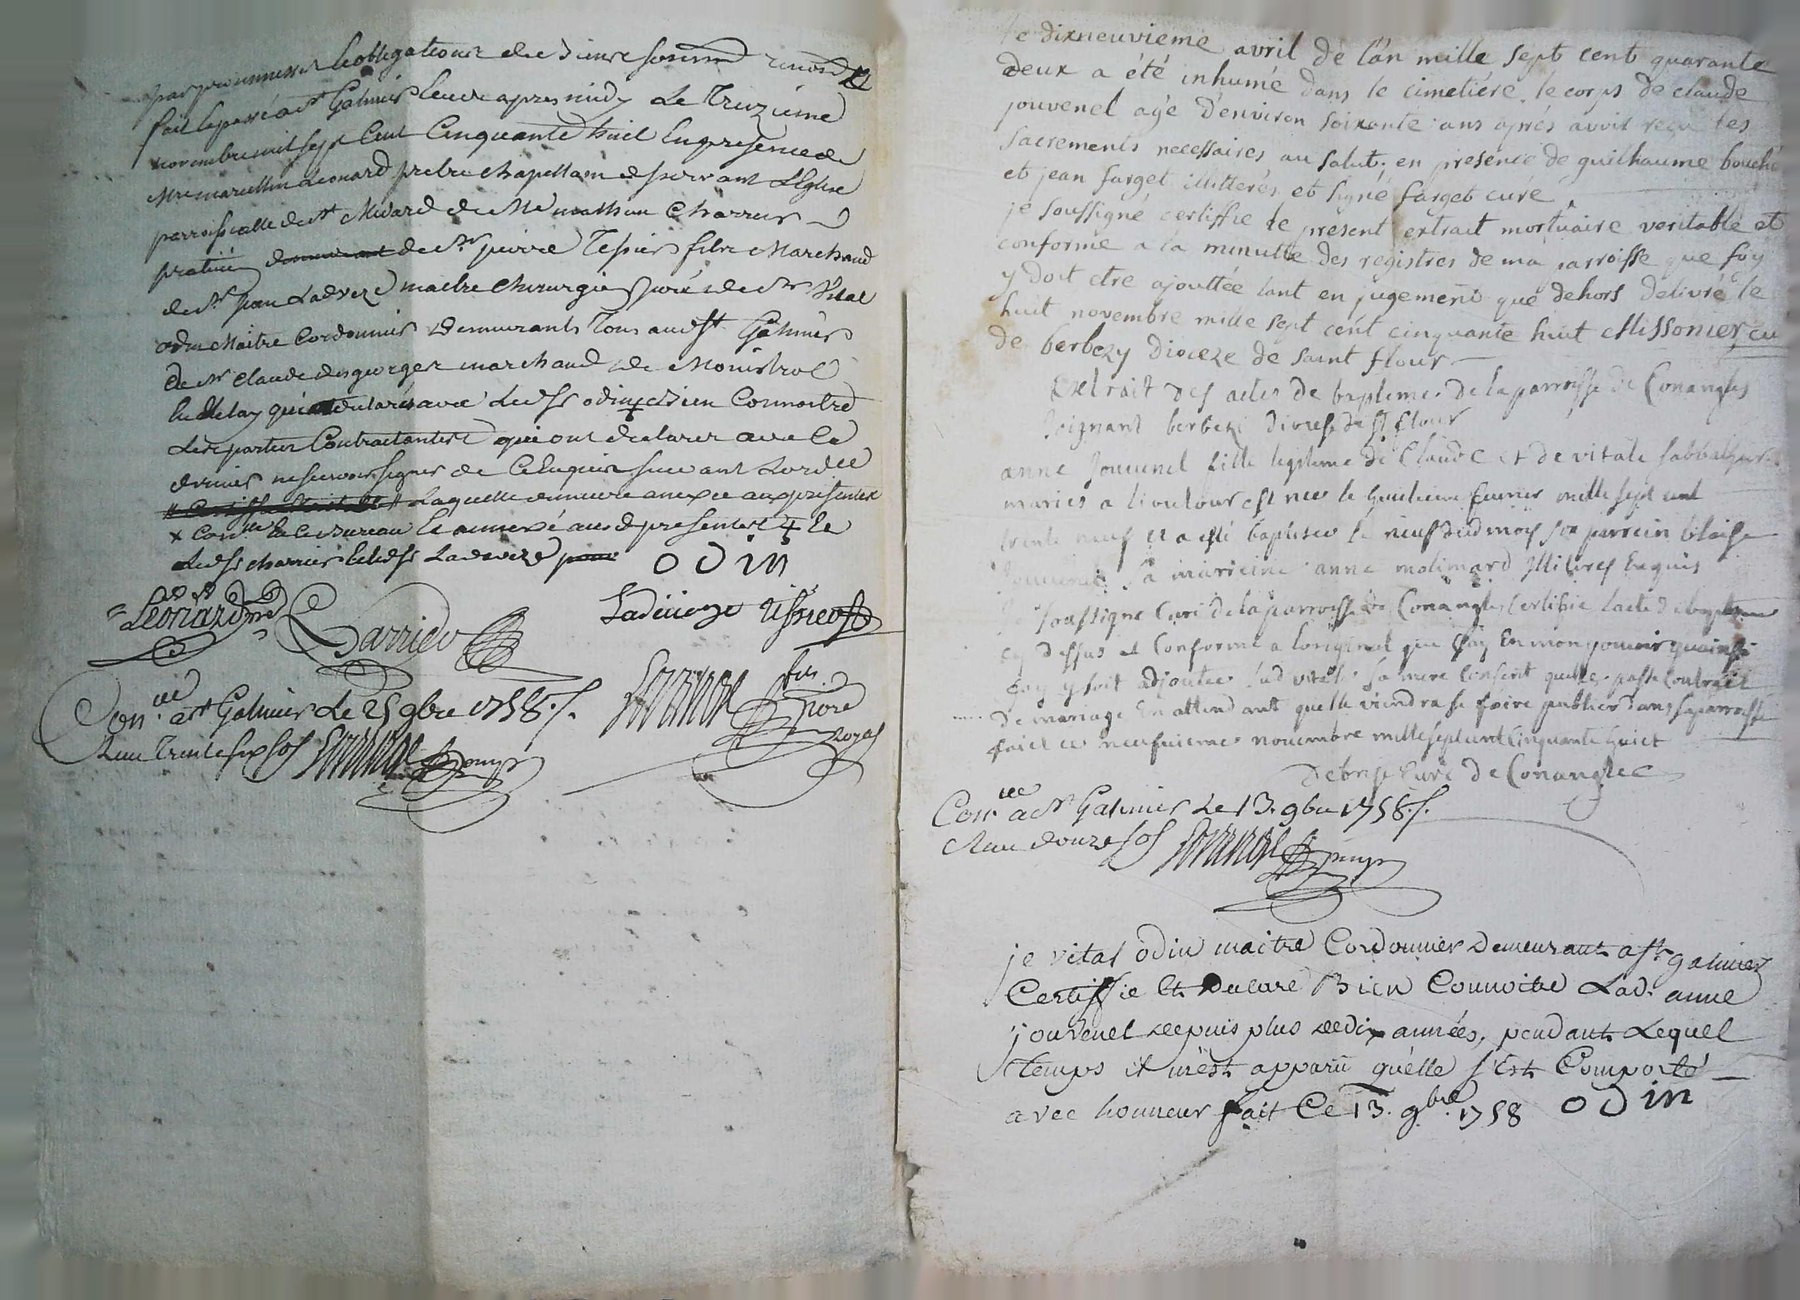 par promesses & obligations de Biens soumis renon.
fait & passé a St Galmier l'an & apres midy Le Treizieme
novembre mil sept Cent Cinquante huit En presence de
Mre marcellin Leonard prebtre chapellain desservant L'Eglise
parroissialle de St Medard de Me mathieu Charrier
praticien de sr pierre Tessier fils Marchand
de sr jean Ladveze maitre chirurgien juré de sr Vital
odin Maitre Cordonnier Demeurants Tous audit St Galmier
de sr claude marchand de Monistrol
en Velay qui declare avec Ledit sr odin Bien Connoitre
Les parties Contractantes qui ont declaré avec le
dernier ne scavoir signer de Ce Enquis suivant Lordce
Laquelle demeure anexée aux presentes
Ledit sr charrier Ledit sr Ladeveze
odin
Leonard ptre Charrier Ladeveze tissieur
Con.lle a St Galmier Le 25 9bre 1758
Reçu Trente six sols
fils
Notre
Royal
Le dixneuvieme avril de l'an mille sept cent quarante
deux a été inhumé dans le cimetiére, le corps de claude
jouvenel agé d'environ soixante ans aprés avoir reçu les
sacrements necessaires au salut; en presence de guilhaume bouché
et jean farget illitterés et signé farget curé
je soussigné certiffie le present extrait mortuaire veritable et
conforme a la minutte des registres de ma parroisse que foy
y doit etre ajouttée tant en jugement que dehors delivré le
huit novembre mille sept cent cinquante huit Missonier cu
de berbezy Dioceze de saint flour
Extrait des actes de bapteme de la parroisse de Conangles
joignant berbezi diocese de St flour
anne Jouvenel fille legitime de Claude et de vitale sabbathier
mariés a lioutour est née le huitieme feuvrier mille sept cent
trente neuf et a esté baptisée le neuf dud mois son parrein blaise
Jouvenel sa marreine anne molimard Illiteres Enquis
Je soussigné Curé de la parroisse de Conangles Certifie lacte de bapteme
cy dessus et Conforme a loriginal que jay En mon pouvoir quainsi
foy y soit adjoutée lad vitale sa mere Consent quelle passe Contrait
de mariage En attendant quelle viendra se faire publier dans sa parroisse
faict ce neufvieme novembre mille sept cent Cinquante huict
Curé de Conangles
Con.lle a St Galmier Le 13. 9bre 1758
Reçu douze sols
je vital odin maitre Cordonnier Demeurant a st galmier
Certiffie Et Declare Bien Connoitre Lad. anne
jouvenel Depuis plus de dix années, pendant Lequel
Temps il m'est apparu qu'elle s'Est Comporté
avec honneur fait Ce 13. 9bre 1758 odin